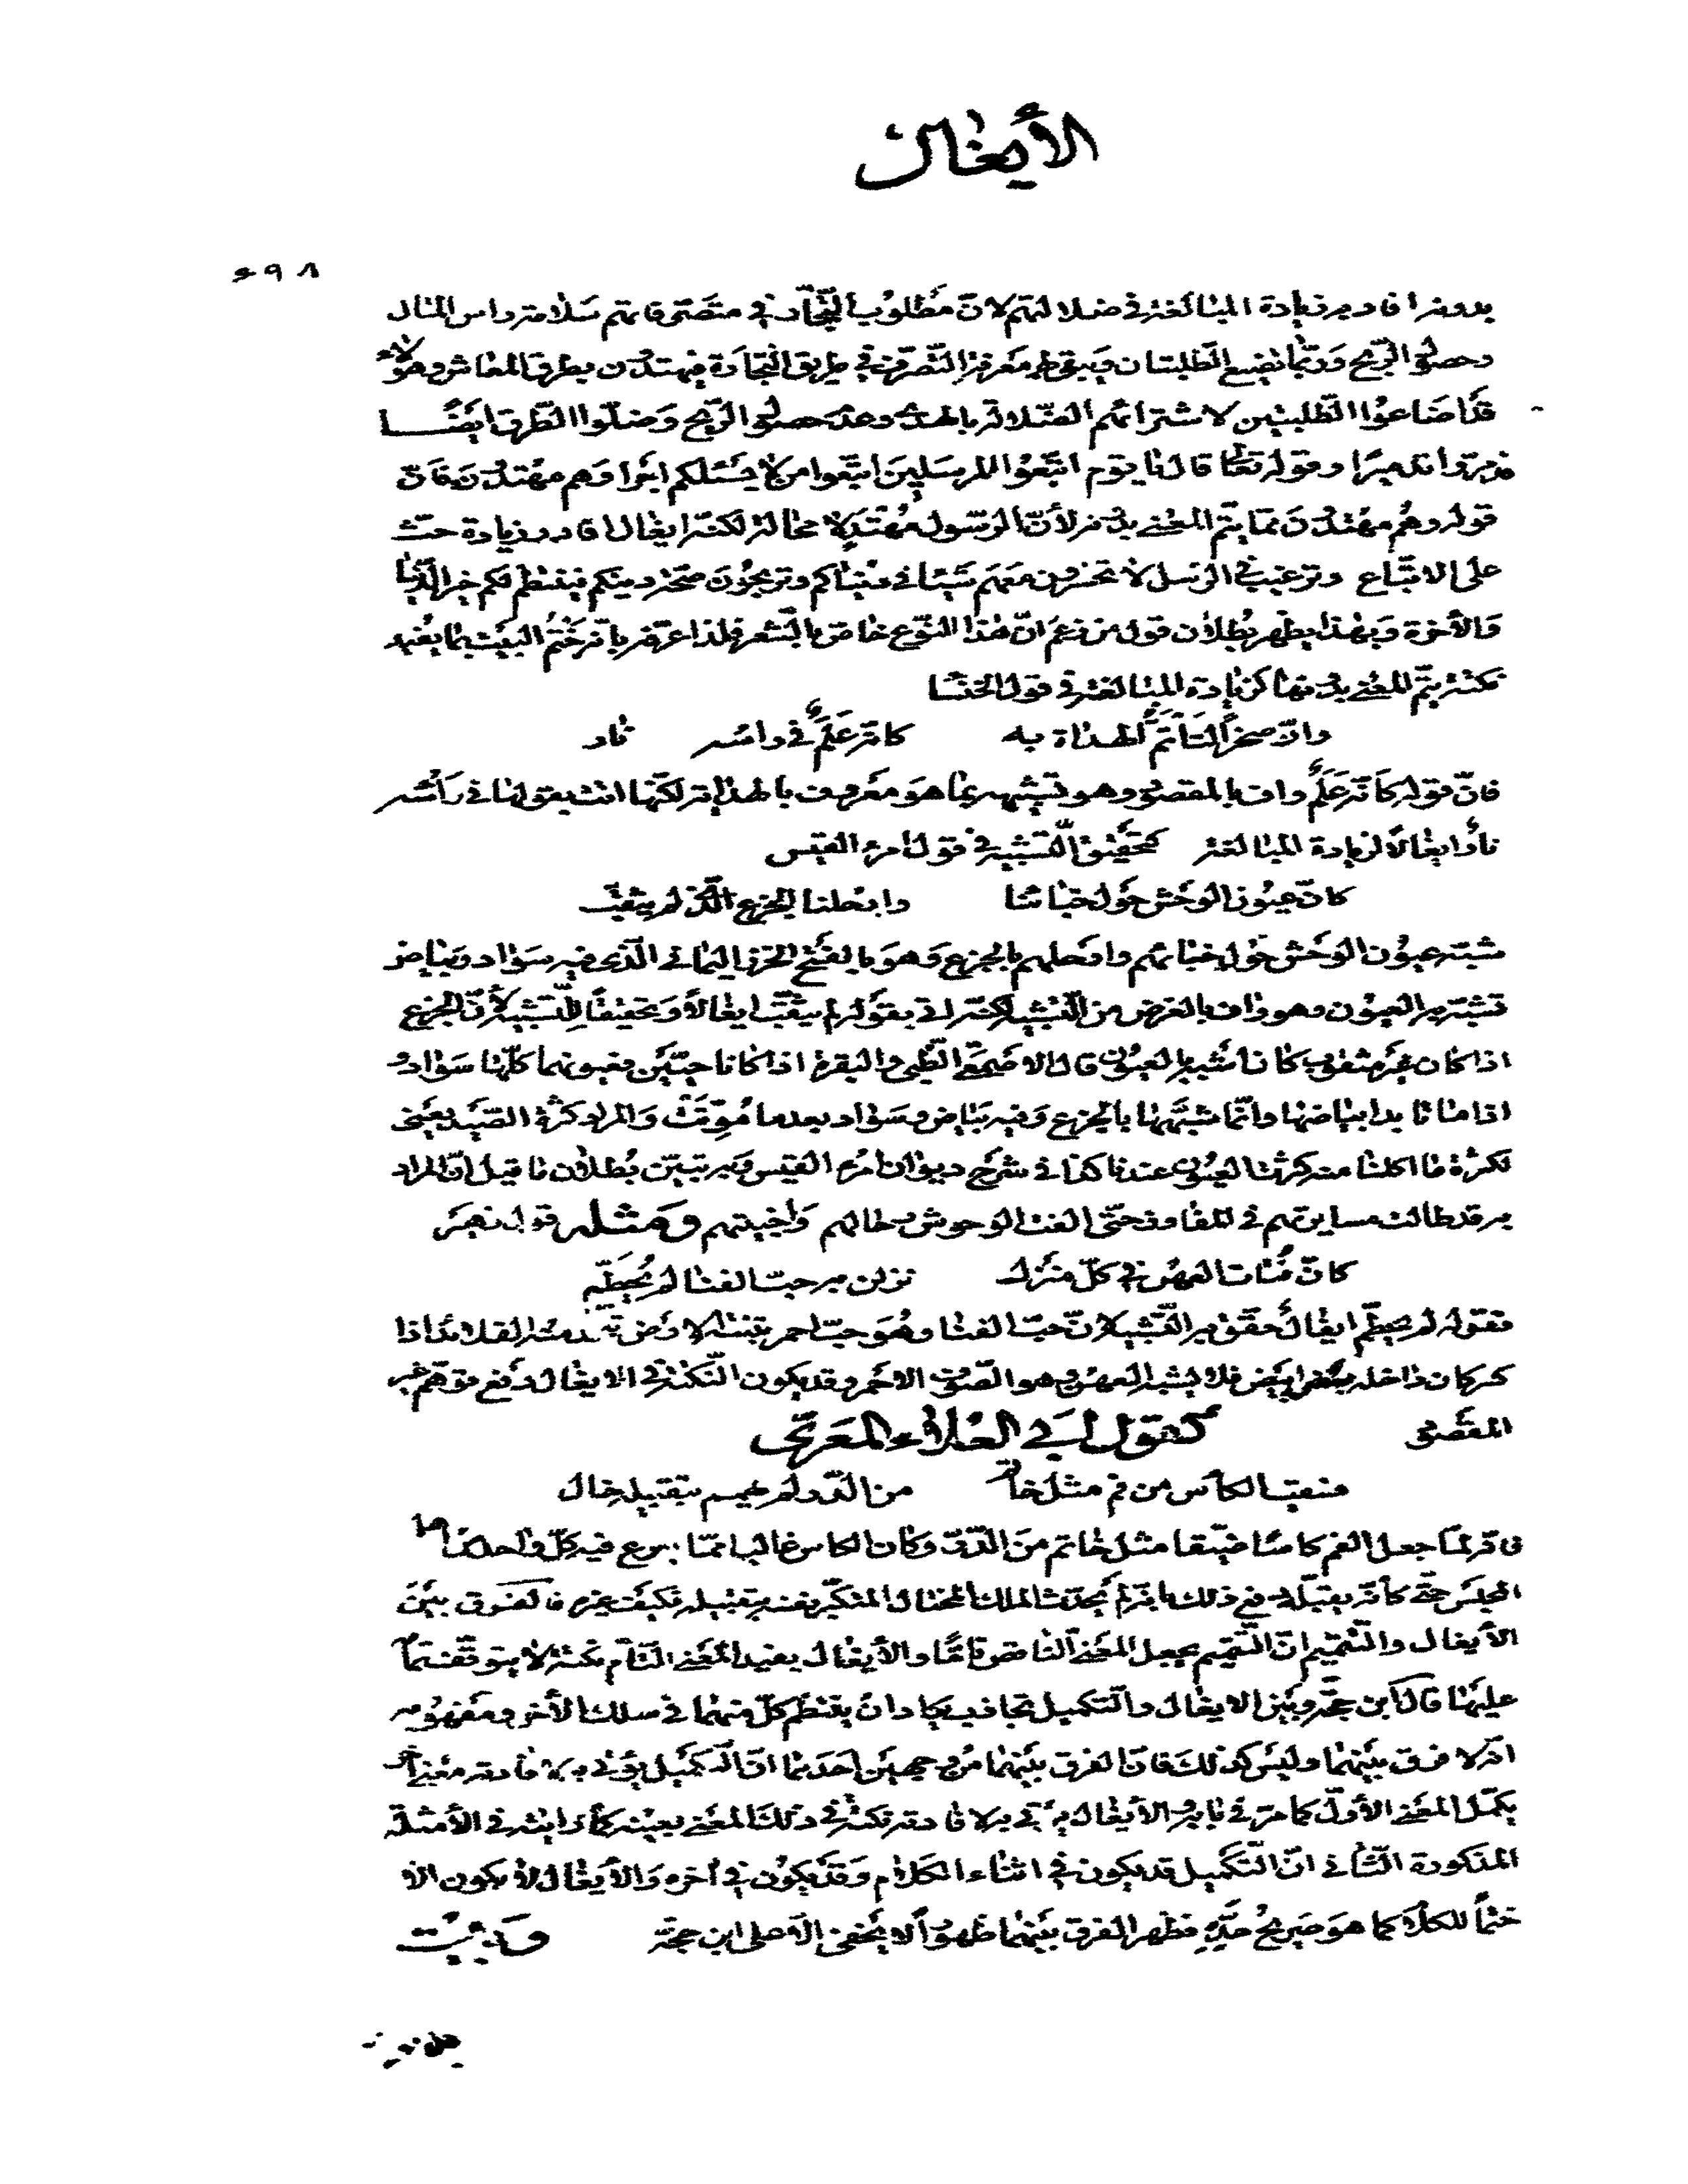 الأيغال
٦٩٨
بدونها فاد به زيادة المبالغة في ضلالتهم لانّ مطلوب التّجّار في متصرّفاتهم سلامة راس المال
وحصول الرّبح وربّما تضيع الطّلبتان ويبقى لهم معرفة التّصرّف في طريق التّجارة فيهتدون بطرق المعاش وهؤلاء
قد اضاعوا الطّلبتين لاشترائهم الضّلالة بالهدى وعدم حصول الرّبح وضلّوا الطّرق ايضًا
فدمّروا تدميرًا وقوله تعالى قال يا قوم اتّبعوا المرسلين اتّبعوا من لا يسئلكم اجرا وهم مهتدون فانّ
قوله وهم مهتدون ممّا يتمّ المعنى بدونه لأنّ الرّسول مهتد لا محالة لكنّه ايغال افاد زيادة حثّ
على الاتّباع وترغيب في الرّسل لا تخسرون معهم شيئا في دنياكم وتربحون صحّة دينكم فينتظم لكم خير الدّنيا
والأخرة وبهذا يظهر بطلان قول من زعم انّ هذا النّوع خاصّ بالشّعر فلذا عرّفه بانّه ختم البيت بما يفيد
نكتة يتمّ المعنى بدونها كزيادة المبالغة في قول الخنسا
وانّ صخراً لتأتمّ الهداة به كانّه علمٌ في راسه نار
فانّ قوله كأنّه علمٌ واف بالمقصود وهو تشبيهه بما هو معروف بالهداية لكنّها اتت بقولها في رأسه
نار ايغالاً لزيادة المبالغة كتحقيق التّشبيه في قول امرء القيس
كانّ عيون الوحش حول خبائنا وارحلنا الجزع الّذي لم يثقّب
شبّه عيون الوحش حول خبائهم وارحلهم بالجزع وهو بالفتح الخرز اليماني الّذي فيه سواد وبياض
تشبّه به العيون وهو واف بالغرض من التّشبيه لكنّه اتى بقوله لم يثقّب ايغالاً وتحقيقًا للتّشبيه لأنّ الجزع
اذا كان غير مثقوب كان أشبه بالعيون قال الاصمعي الظّبي والبقرة اذا كانا حيّين فعيونهما كلّها سواد و
اذا ماتا بدا بياضها وانّما شبّهها بالجزع وفيه بياض وسواد بعد ما موّتت والمراد كثرة الصّيد يعني
لكثرة ما اكلنا منه كثرت العيون عندنا كذا في شرح ديوان امرء القيس وبه تبيّن بطلان ما قيل انّ المراد
به قد طالت مسايرتهم في المفاوز حتّى الفت الوحوش رحالهم وأخبيتهم ومثله قول زهير
كانّ فتات العهن في كلّ منزل نزلن به حبّ الفنا لم يحطّم
فقوله لم يحطّم ايغال حقّق به التّشبيه لانّ حبّ الفنا وهو حبّ احمر تنبته الارض تتّخذ منه القلائد اذا
كسر كان داخله ابيض فلا يشبه العهن وهو الصّوف الاحمر وقد يكون النّكتة في الايغال دفع توهّم غير
المقصود كقول ابي العلاء المعرّي
فسقيا لكأس من فم مثل خاتم من الدّر لم يهمم بتقبيله خال
فانّه لمّا جعل الفم كاسًا ضيّقا مثل خاتم من الدّر وكان الكاس غالبا ممّا يكرع فيه كلّ واحد من اهل
المجلس حتّى كأنّه يقبّله دفع ذلك بانّه لم يحدّث الملك المختال المتكبّر نفسه بتقبيله فكيف غيره فالفرق بين
الأيغال والتّتميم انّ التّتميم يجعل المعنى النّاقص تامًّا والأيغال يفيد المعنى التّام نكتة لا يتوقّف تمامه
عليها قال ابن حجّة وبين الايغال والتّكميل تجاذب يكاد ان ينتظم كلّ منهما في سلك الأخر ومفهومه
انّه لا فرق بينهما وليس كذلك فانّ الفرق بينهما من وجهين احدهما انّ التّكميل يؤتى به لافادته معنى أخر
يكمّل المعنى الأوّل كما مرّ في بابه والأيغال يؤتى به لافادته نكتة في ذلك المعنى بعينه كما رايته في الأمثلة
المذكورة الثّاني انّ التّكميل قد يكون في اثناء الكلام وقد يكون في أخره والأيغال لا يكون الا
ختماً للكلام كما هو صريح حدّه فظهر الفرق بينهما ظهوراً لا يخفى الّا على ابن حجّة وبيت